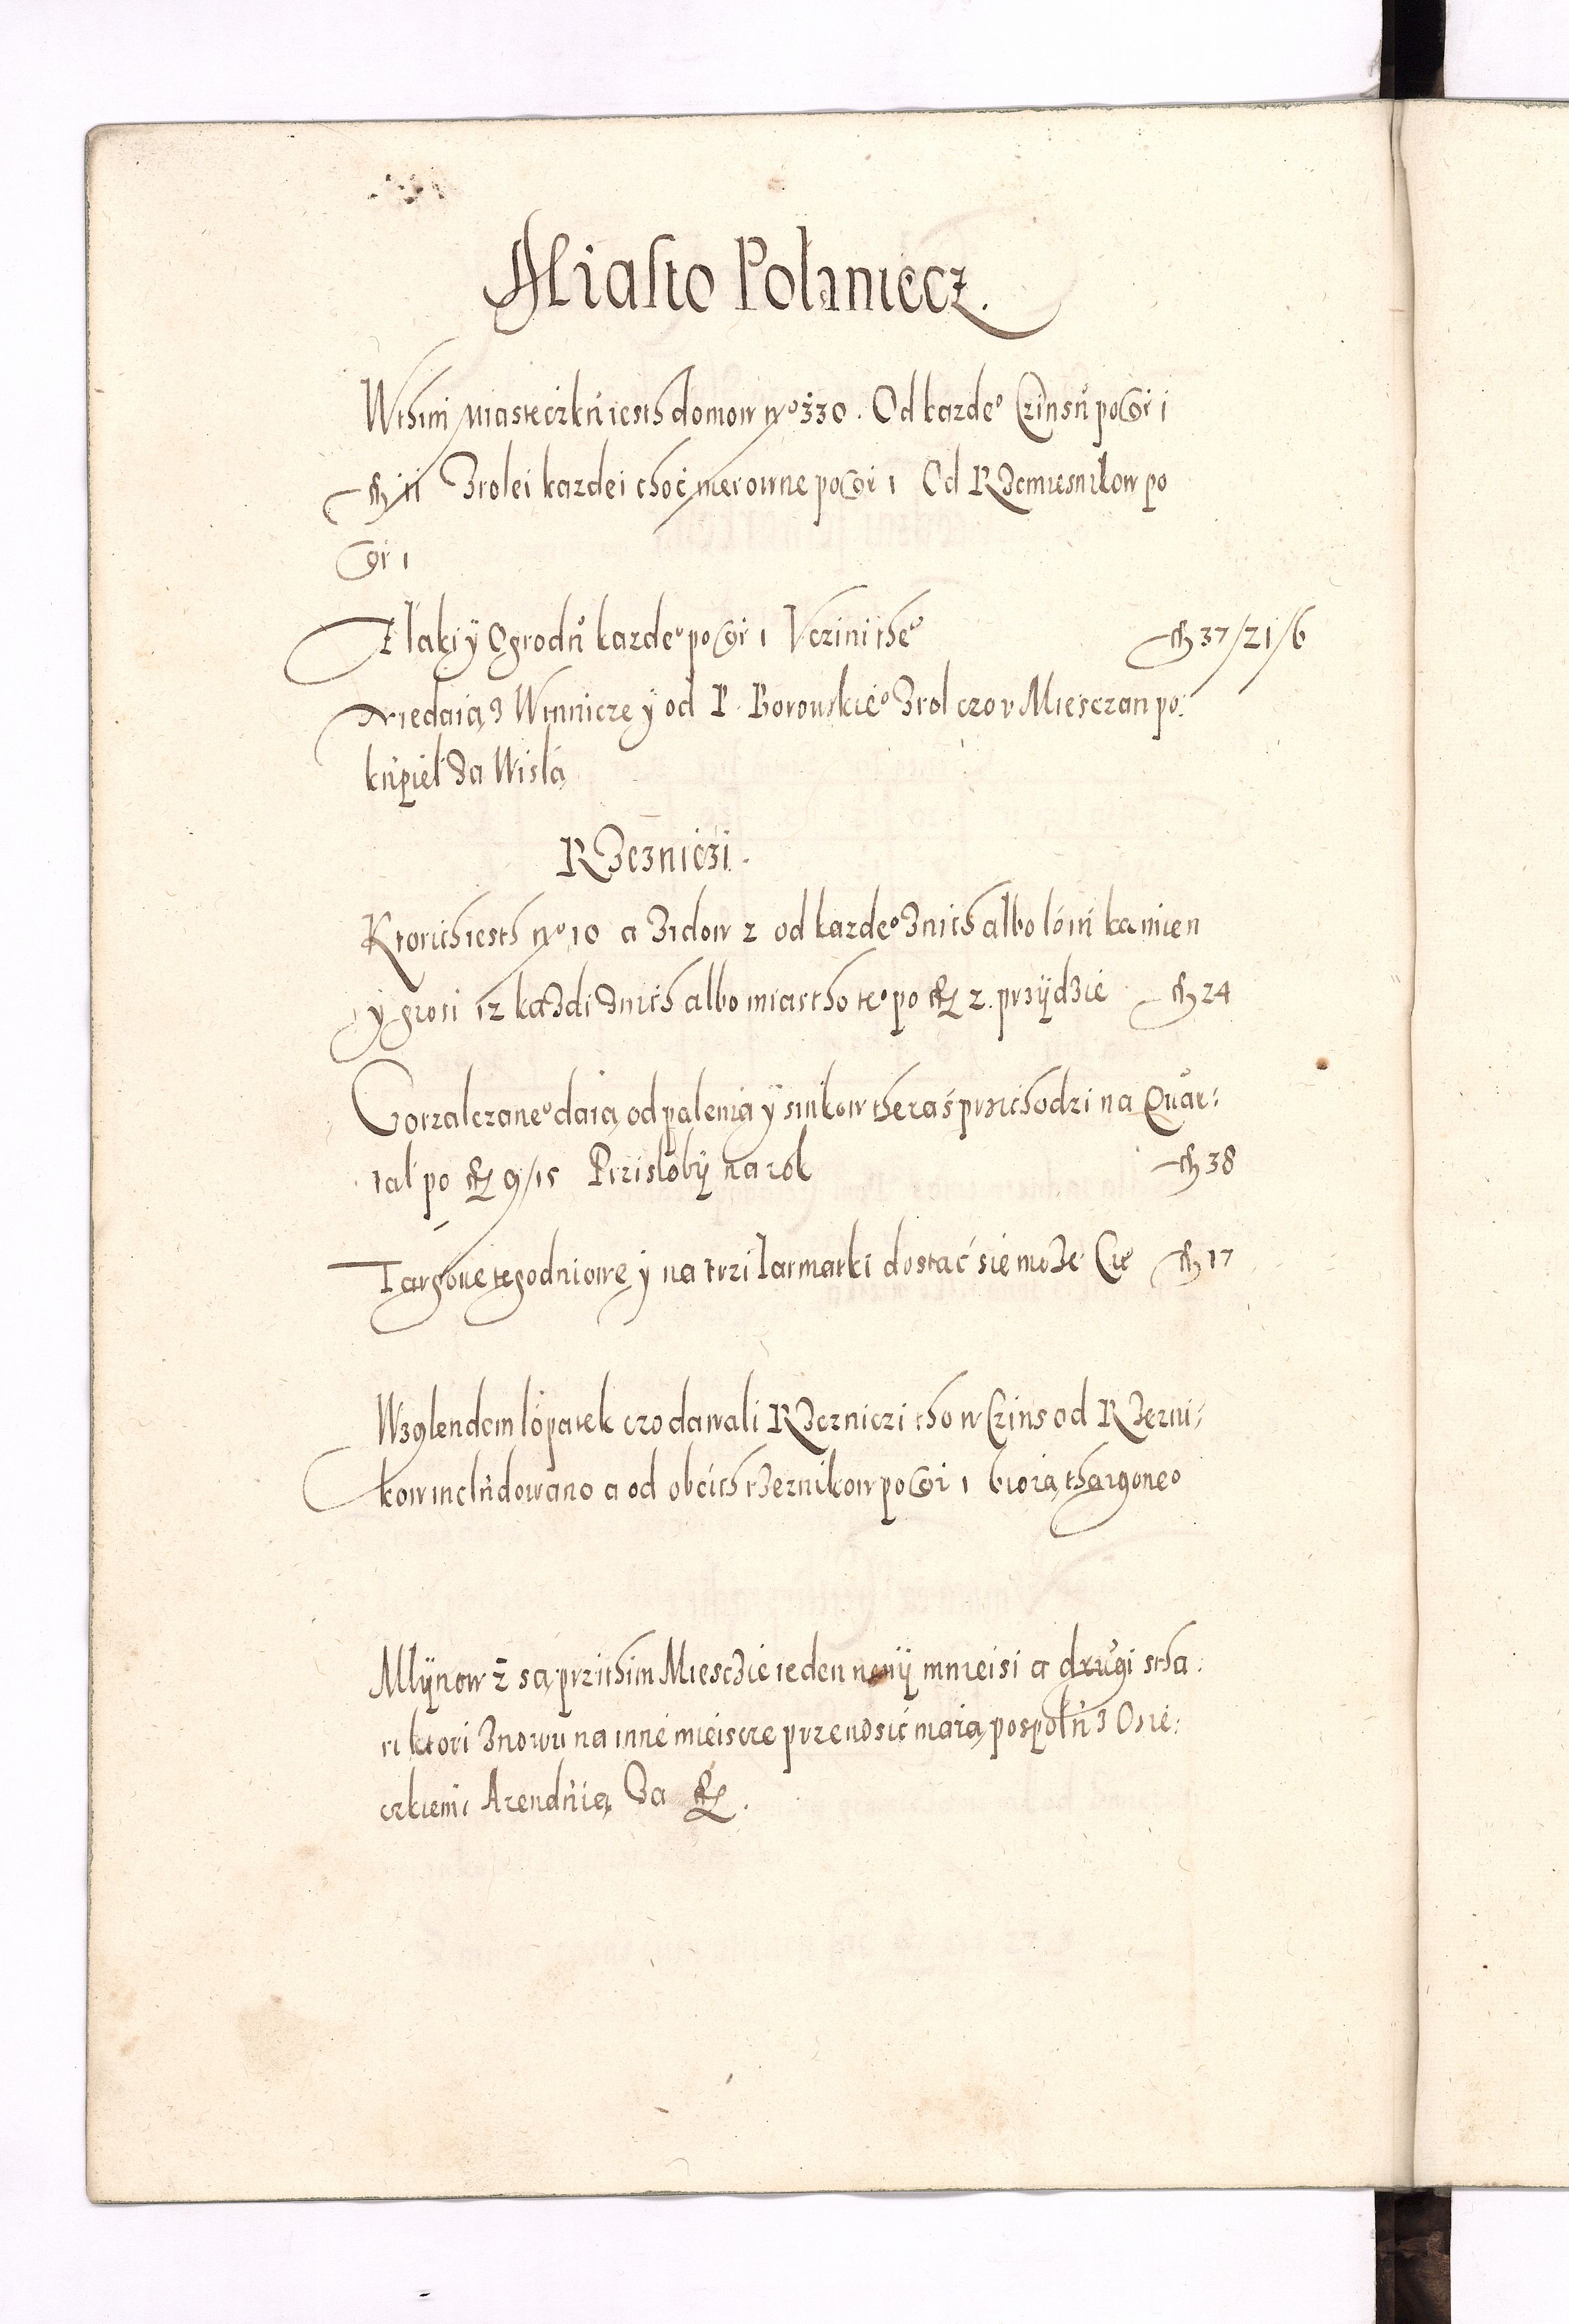 Miasto Polaniecz.
Wthim Miasteczku iesth domow nro 330. Od kazdeo Czinsu po Gr i
fl ii Zrolei kazdei choć nierowne po Gr 1 Od Rzemiesnikow po
Gr 1
Z laki y Ogrodu kazdeo po Gr 1 Vczini theo fl 37/21/6
Niedaią z Winnicze y od P. Borowskieo Zrol czo v Miesczan po:
kupieł Za Wislą
Rzezniczi.
Ktorich iesth nro 10 a Zidow 2 od kazdeo Znich albo łoiu kamien
y grosi 12 kaZdi Znich albo miastho teo po fl 2. przÿdzie fl 24
Gorzalczaneo daią od palenia y sinkow theraś przichodzi na Quar:
tał po fl 9/15 Prziśłobÿ na rok fl 38
Targowe tegodniowe y na trzi Iarmarki dostać sie może Cir fl 17
Wzglendem łopatek czo dawali Rzezniczi tho w Czins od Rzezni:
kow includowano a od obcich rzeznikow po Gr 1 biorą thargoneo
Mlÿnow 2 są przithim Miesczie ieden mnieisi a drugi stha:
ri ktori Znowu na inne mieiscze przenosić maią pospołu z Osie:
czkiem Arenduią Za fl.